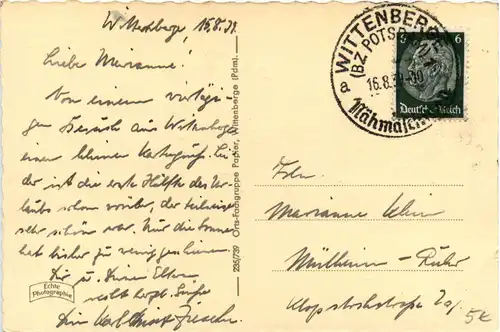 Wittenberge 15.8.39.
Liebe Marianne!
Von einem viertägi-
gen Besuch aus Wittenberge
einen kleinen Kartengruß. Lei-
der ist die erste Hälfte des Ur-
laubs schon vorüber, der teilweise
sehr schön war. Nur die Sonne
hat bisher zu wenig geschienen.
Dir u. Deinen Eltern
recht herzl. Grüße
Dein Karl
Echte
Photographie
236/739 Orts-Fachgruppe Papier, Wittenberge (Pdm).
WITTENBERGE
(BZ POTSD
a
16.8.39
Nähmasch
6 6
Deutsches Reich
Frln.
Marianne
Mülheim-Ruhr
Klopstockstraße
5€